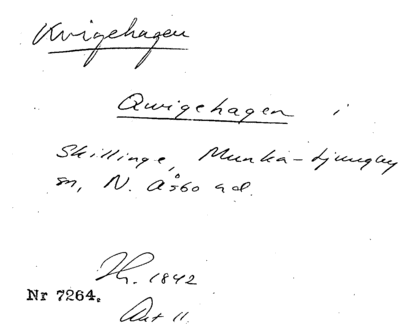 Kvigehagen
Qwigehagen i
Skillinge, Munka-Ljungby
sn, N. Åsbo hd.
Th. 1842
Nr 7264.
Akt 11.